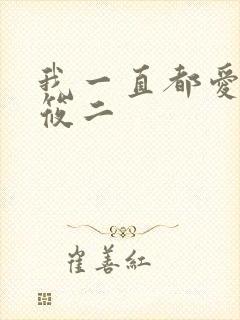 我一直都愛
筱二
崔善紅